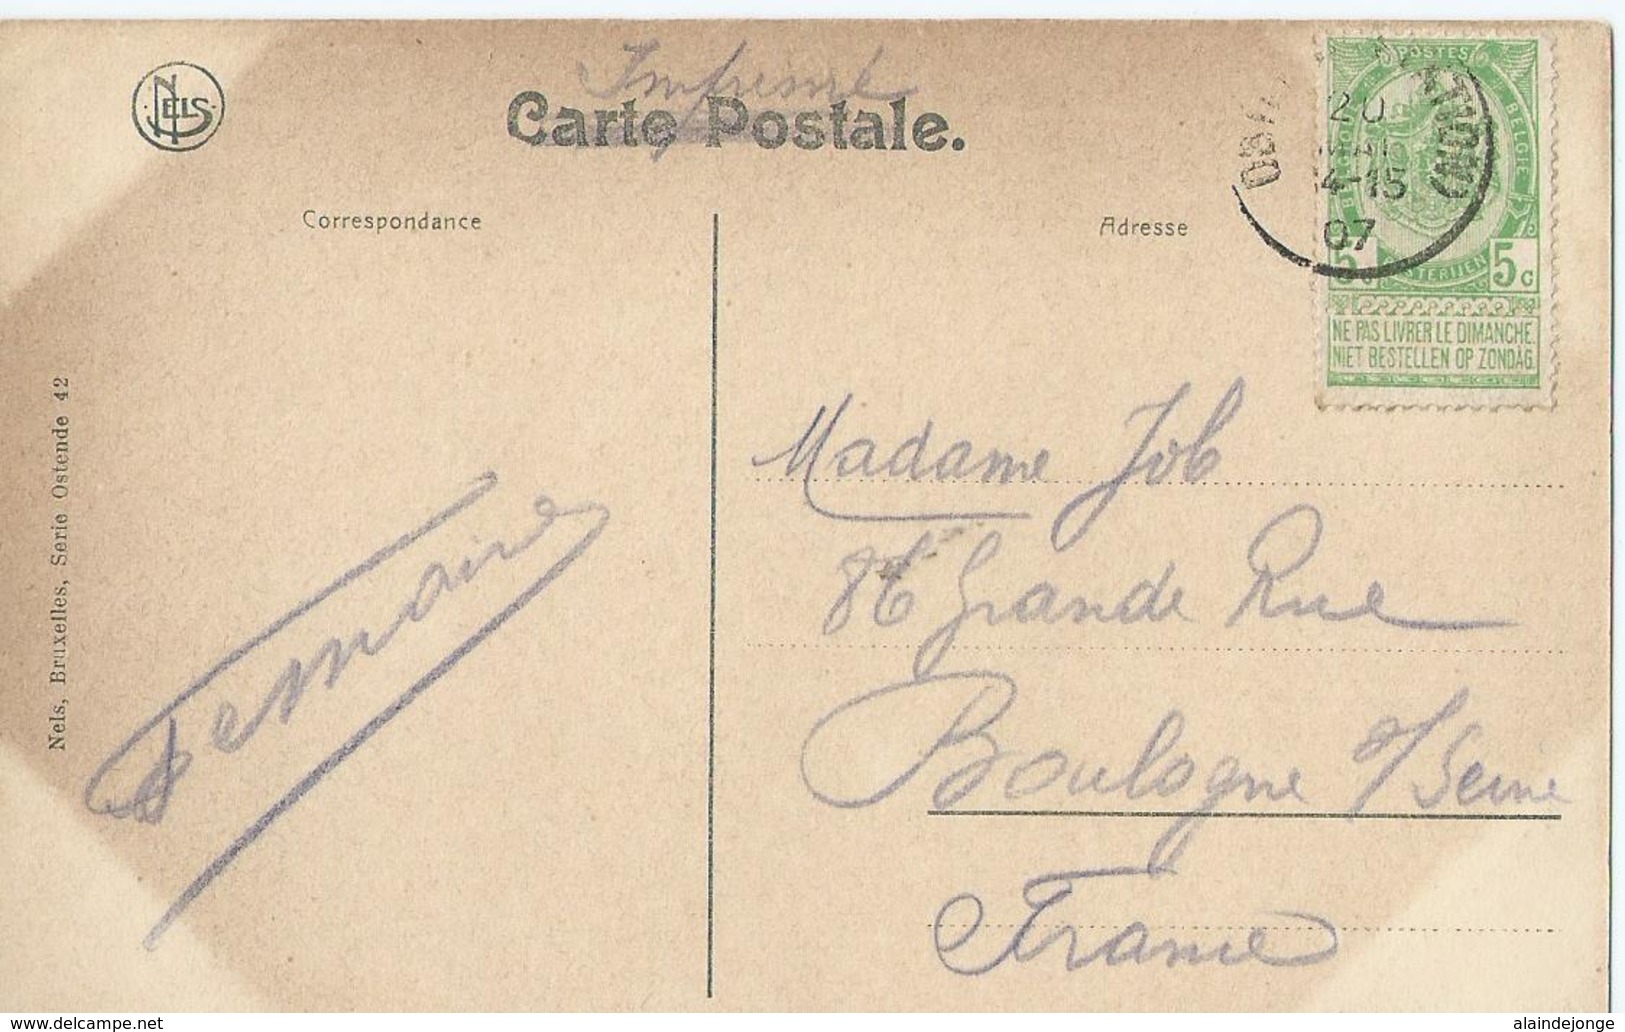 Imprimé
NELS
Carte Postale.
Correspondance
Adresse
POSTES
BELGIQUE
BELGIE
20
MAI
4-15
07
5c
5c
NE PAS LIVRER LE DIMANCHE.
NIET BESTELLEN OP ZONDAG.
Nels, Bruxelles, Serie Ostende 42
Madame Job
86 Grande Rue
Boulogne s/Seine
France
www.delcampe.net
alaindejonge